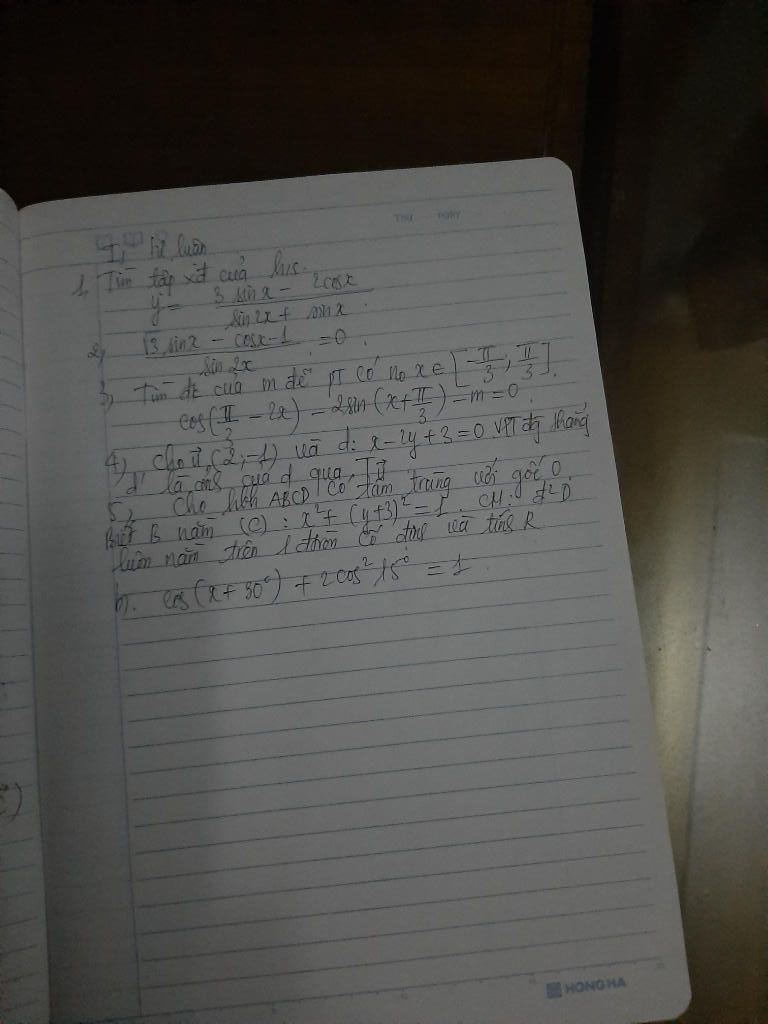 THỨ NGÀY
I, Tự luận
1, Tìm tập xđ của h/s.
y = (3 sin x - 2cosx)/(sin2x + sin x).
2, (√3 sinx - cosx - 1)/(sin 2x) = 0.
3, Tìm đk của m để PT có no x ∈ [-π/3; π/3].
cos(π/3 - 2x) - 2sin(x + π/3) - m = 0.
4, Cho u⃗ (2; -1) và d: x - 2y + 3 = 0. VPT đg thẳng
d' là ảnh của d qua T u⃗
5, Cho hbh ABCD có tâm trùng với gốc O.
Biết B nằm (C): x² + (y+3)² = 1. CM: đ² D
luôn nằm trên 1 đtròn cố định và tính R
b. cos(x + 30°) + 2cos² 15° = 1.
HONG HA